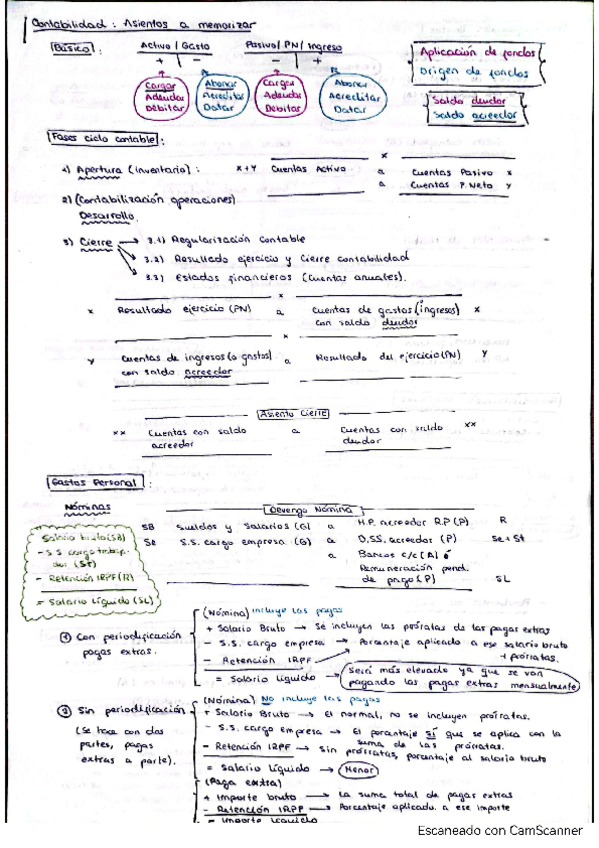 Contabilidad: Asientos a memorizar
Básico:
Activo/Gasto Pasivo/PN/Ingreso
+ - - +
Cargar Adeudar Debitar
Abonar Acreditar Datar
Cargar Adeudar Debitar
Abonar Acreditar Datar
Aplicación de fondos
Origen de fondos
Saldo deudor
Saldo acreedor
Fases ciclo contable:
1) Apertura (Inventario): x+y Cuentas Activo a Cuentas Pasivo x
a Cuentas P.Neto y
2) (Contabilización operaciones)
Desarrollo.
3) Cierre → 3.1) Regularización contable
3.2) Resultado ejercicio y Cierre contabilidad
3.3) Estados financieros (Cuentas anuales).
x Resultado ejercicio (PN) a Cuentas de gastos (ingresos) x
con saldo deudor
y Cuentas de ingresos (o gastos) a Resultado del ejercicio (PN) y
con saldo acreedor
Asiento Cierre
xx Cuentas con saldo a Cuentas con saldo xx
acreedor deudor
Gastos Personal:
Nóminas
Salario bruto (SB)
- S.S. cargo trabaja-
dor (St)
- Retención IRPF (R)
= Salario líquido (SL)
Devengo Nómina
SB Sueldos y Salarios (G) a H.P. acreedor R.P (P) R
Se S.S. cargo empresa (G) a O.SS. acreedor (P) Se+St
a Bancos c/c (A) ó
Remuneración pend.
de pago (P) SL
① Con periodificación
pagas extras.
(Nómina) incluye las pagas
+ Salario Bruto → Se incluyen las prórratas de las pagas extras
- S.S. cargo empresa → Porcentaje aplicado a ese salario bruto
+ prórratas.
- Retención IRPF
= Salario líquido → Será más elevado ya que se van
pagando las pagas extras mensualmente
② Sin periodificación
(Se hace con dos
partes, pagas
extras a parte).
(Nómina) No incluye las pagas
+ Salario Bruto → El normal, no se incluyen prórratas.
- S.S. cargo empresa → El porcentaje sí que se aplica con la
suma de las prórratas.
- Retención IRPF → Sin prórratas, porcentaje al salario bruto
= Salario líquido → Menor
(Paga extra)
+ Importe bruto → La suma total de pagas extras
- Retención IRPF → Porcentaje aplicado a ese importe
= Importe líquido
Escaneado con CamScanner